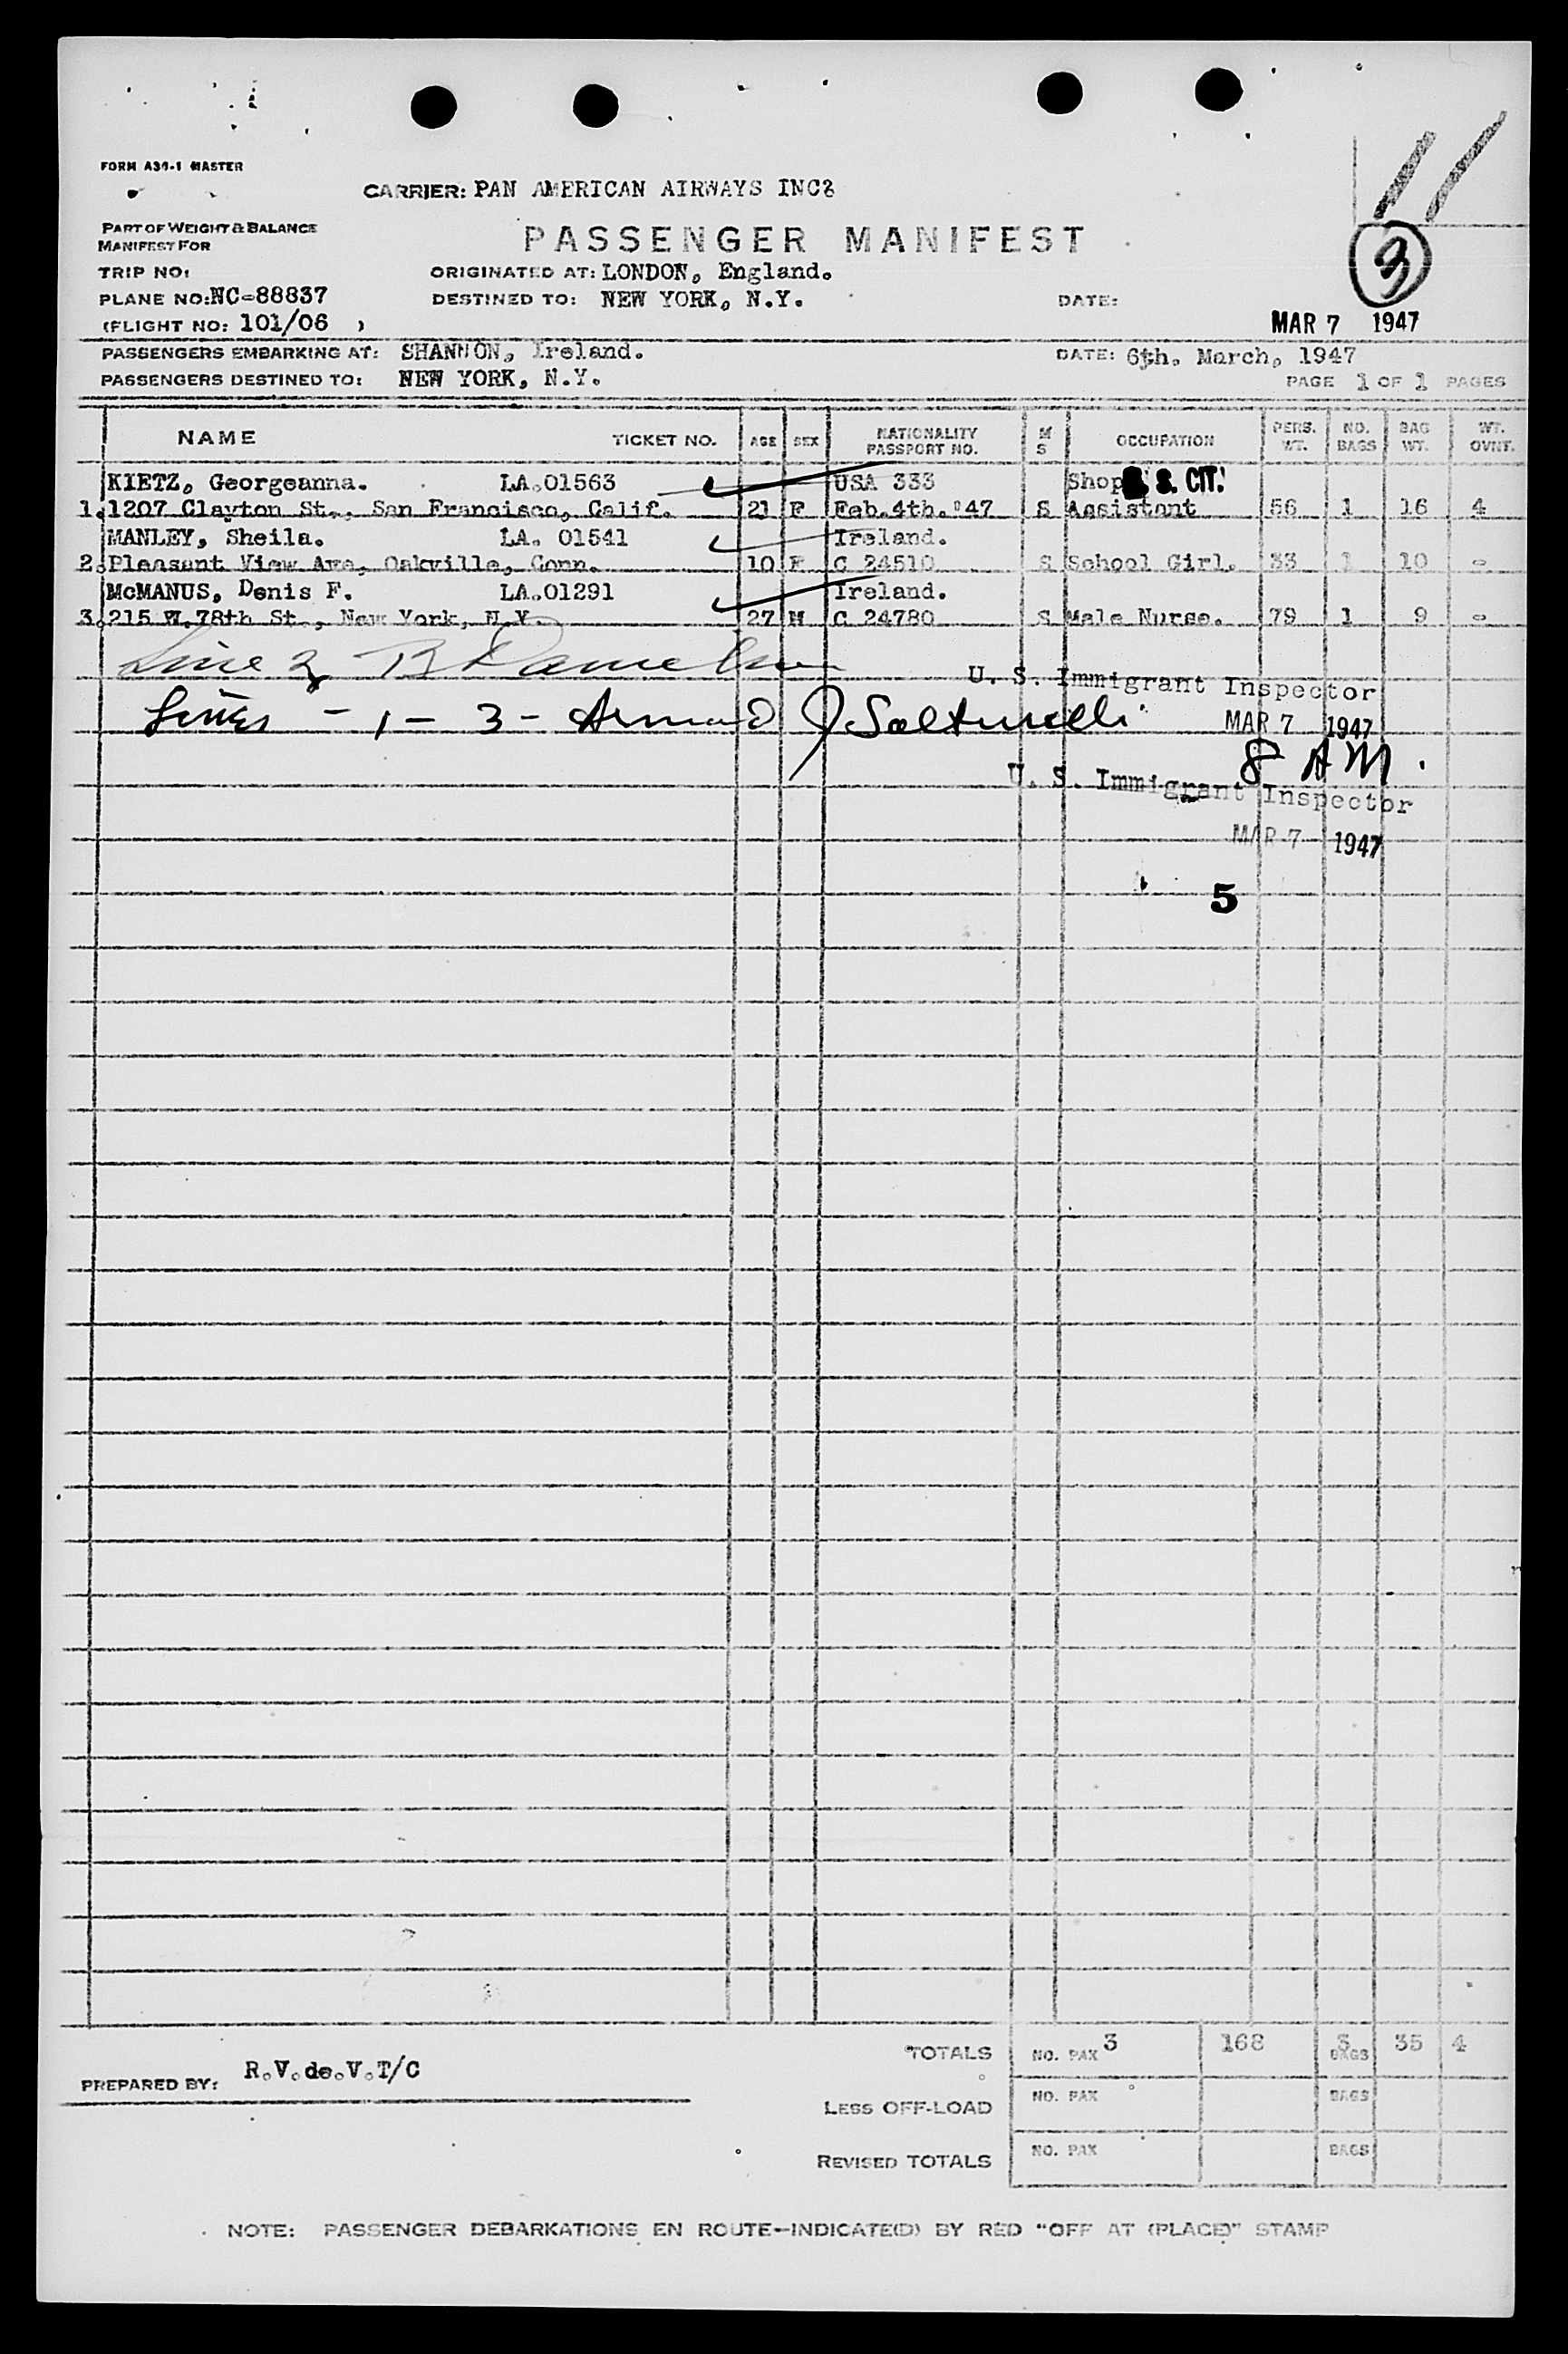 11
FORM A34-1 MASTER
CARRIER: PAN AMERICAN AIRWAYS INC&
PART OF WEIGHT & BALANCE
MANIFEST FOR
PASSENGER MANIFEST
3
TRIP NO:
ORIGINATED AT: LONDON, England.
PLANE NO: NC-88837
DESTINED TO: NEW YORK, N.Y.
DATE:
(FLIGHT NO: 101/06 )
MAR 7 1947
PASSENGERS EMBARKING AT: SHANNON, Ireland.
DATE: 6th. March, 1947
PASSENGERS DESTINED TO: NEW YORK, N.Y.
PAGE 1 OF 1 PAGES
NAME TICKET NO. AGE SEX NATIONALITY PASSPORT NO. M S OCCUPATION PERS. WT. NO. BAGS BAG WT. WT. OVNT.
KIETZ, Georgeanna. LA.01563 USA 333 Shop S. CIT.
1. 1207 Clayton St., San Francisco, Calif. 21 F Feb.4th.'47 S Assistant 56 1 16 4
MANLEY, Sheila. LA. 01541 Ireland.
2. Pleasant View Ave, Oakville, Conn. 10 F C 24510 S School Girl. 33 1 10 -
McMANUS, Denis F. LA.01291 Ireland.
3. 215 W.78th St., New York, N.Y. 27 M C 24780 S Male Nurse. 79 1 9 -
Line 2
U. S. Immigrant Inspector
Lines - 1 - 3 - Armand J
MAR 7 1947
8 AM.
U. S. Immigrant Inspector
MAR 7 1947
5
TOTALS NO. PAX 3 168 3 BAGS 35 4
PREPARED BY: R.V.de.V.T/C
LESS OFF-LOAD NO. PAX BAGS
REVISED TOTALS NO. PAX BAGS
NOTE: PASSENGER DEBARKATIONS EN ROUTE-INDICATE(D) BY RED "OFF AT (PLACE)" STAMP